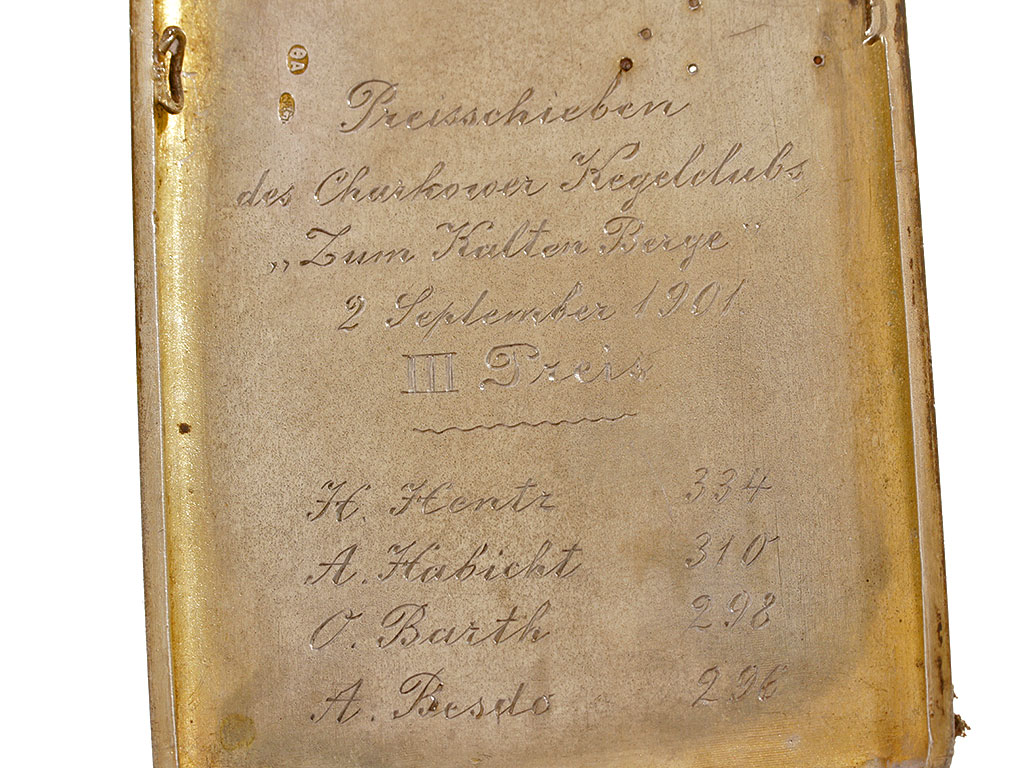 ѲА
Preisschieben
des Charkower Kegelclubs
„Zum Kalten Berge"
2 September 1901.
III Preis
H. Hentz 334
A. Habicht 310
O. Barth 298
A. Besdo 296